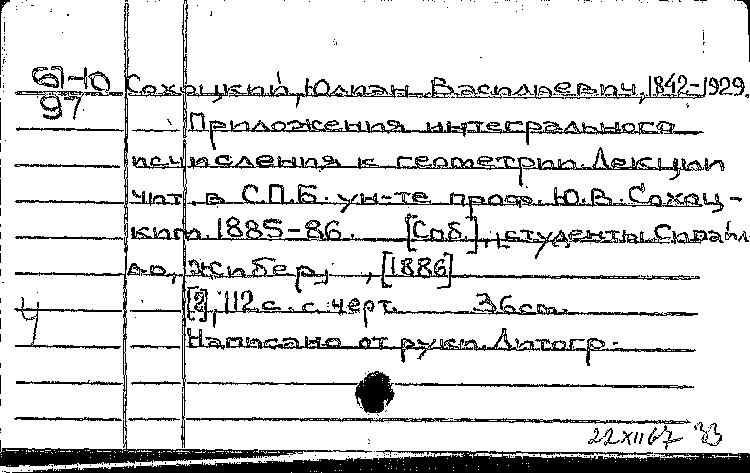 61-10 Сохоцкий, Юлиан Васильевич, 1842-1929.
97
Приложения интегрального
исчисления к геометрии. Лекции
чит. в С.П.Б. ун-те проф. Ю.В. Сохоц-
ким. 1885-86. [Спб.], студенты
Жибер, , [1886]
[2], 112 с. с черт. 36 см.
Написано от руки. Литогр.
22 XII 67